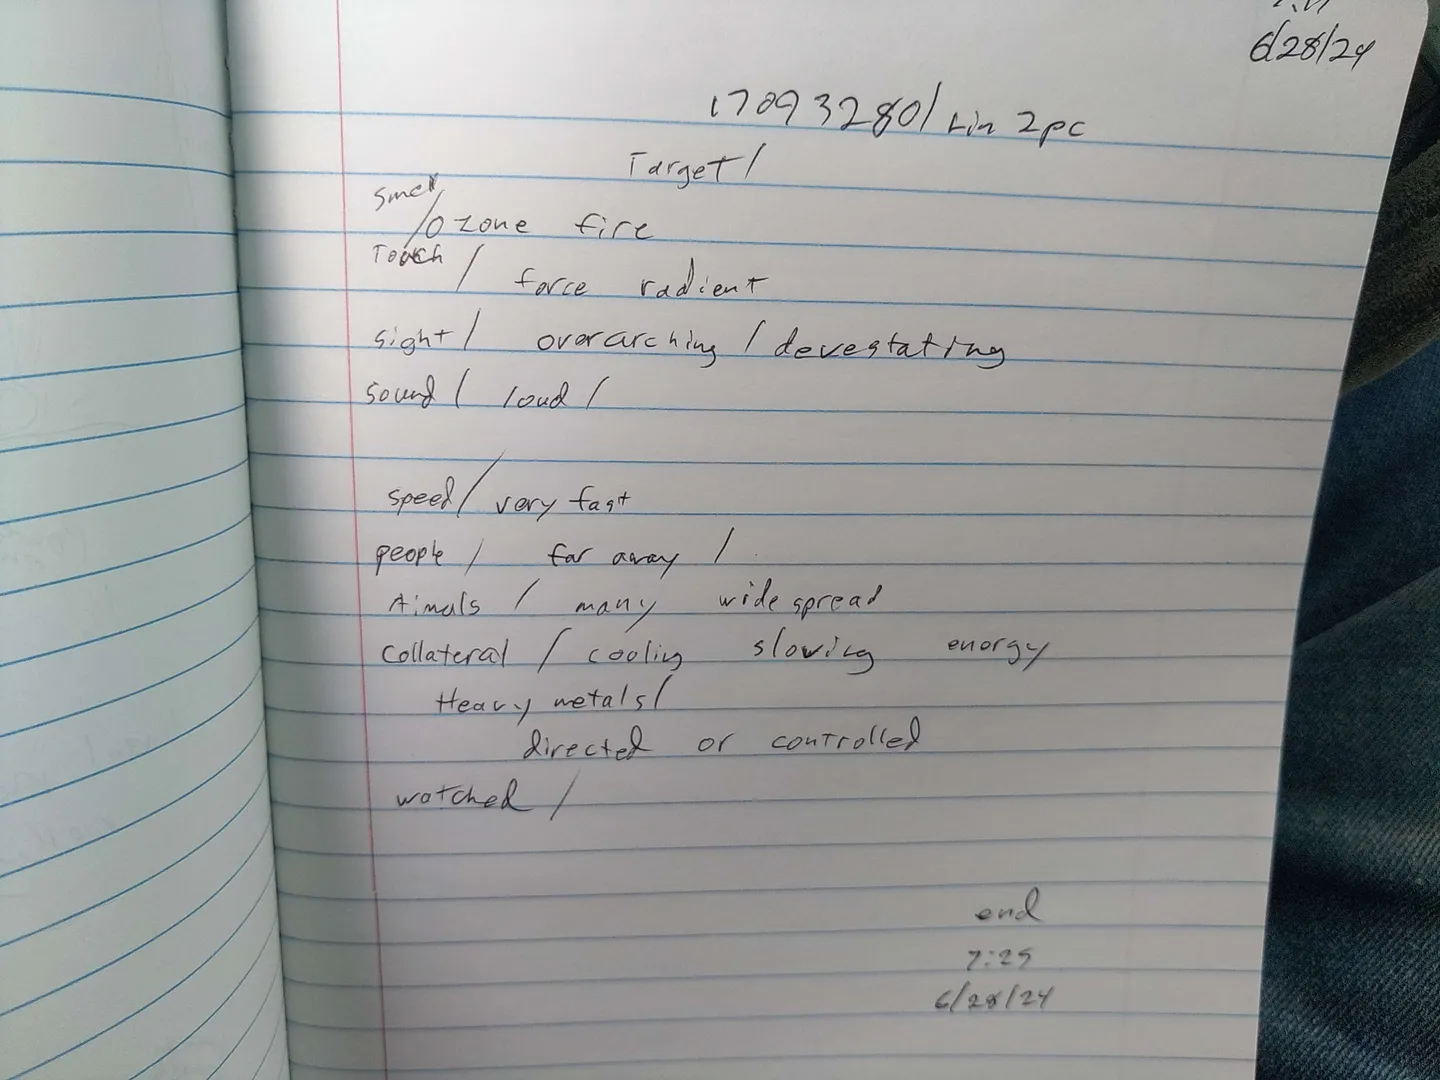 6/28/24
17093280/ Lin 2pc
Target/
Smell
/Ozone fire
Touch / force radient
sight/ overarching / devestating
sound / loud /
speed/ very fast
people / far away /
Aimals / many wide spread
Collateral / cooling slowing energy
Heavy metals/
directed or controlled
watched /
end
7:25
6/28/24